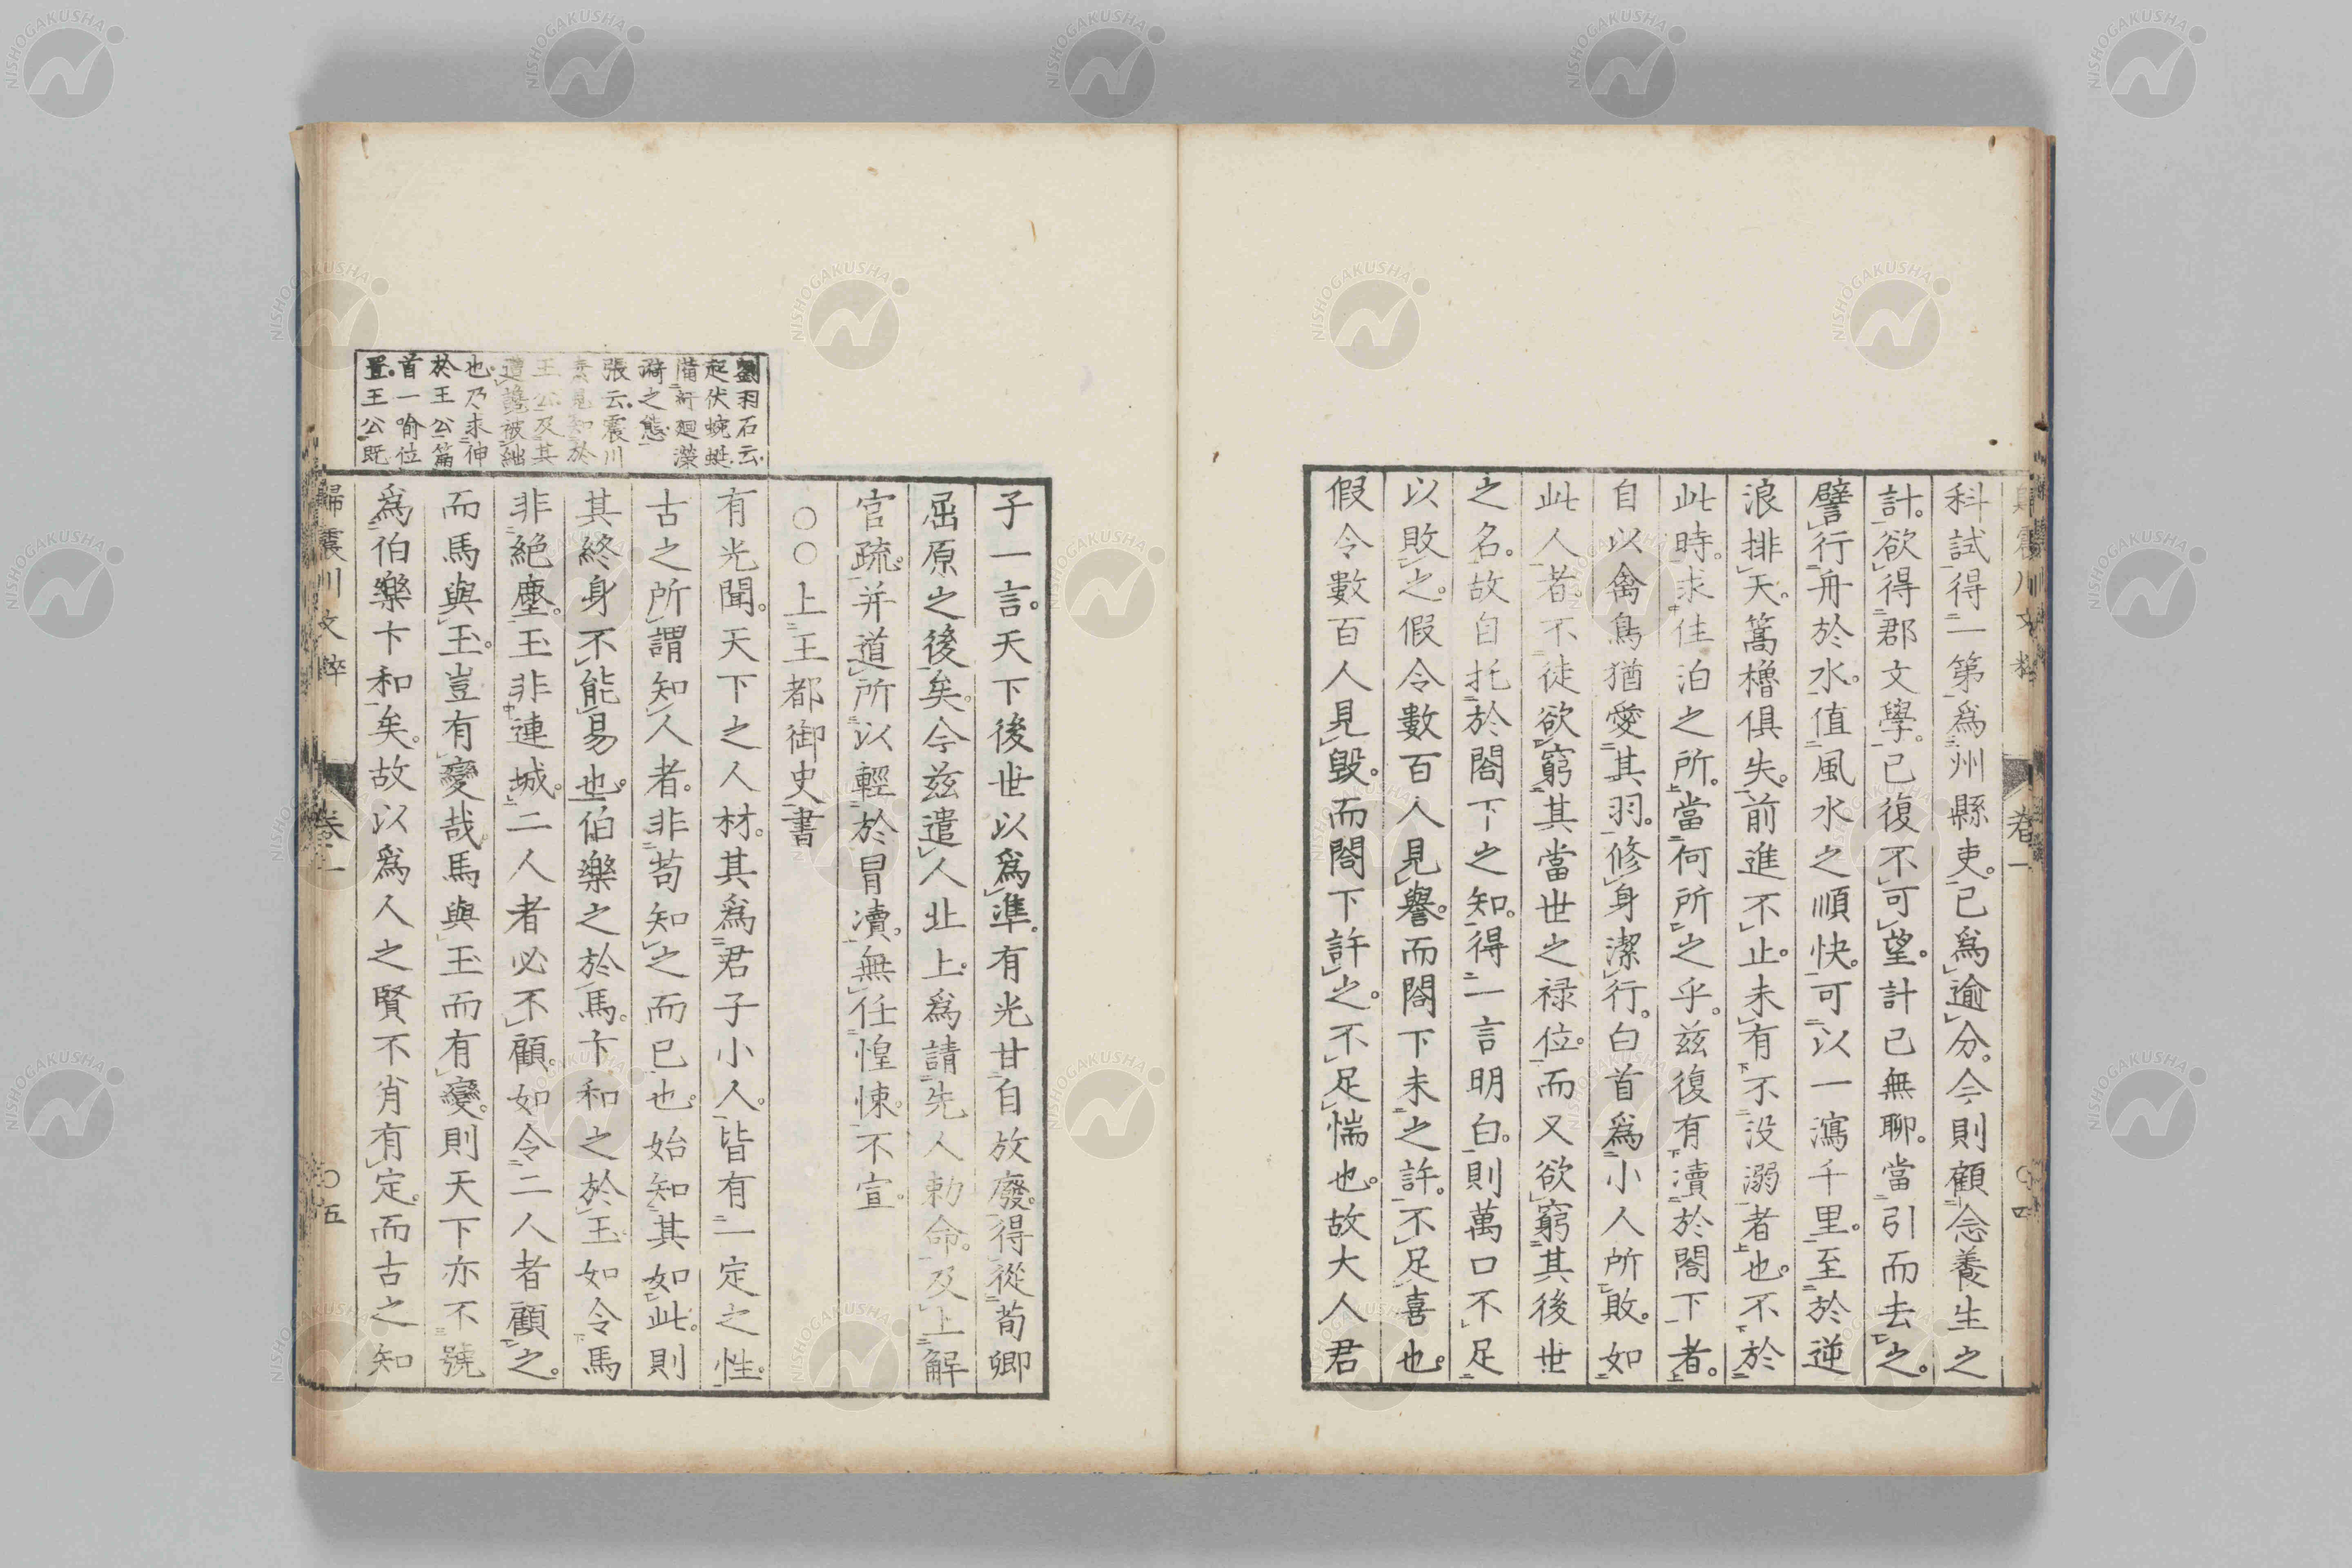 科試得一第爲州縣吏。已爲逾分。今則顧念養生之
計。欲得郡文學。已復不可望。計已無聊。當引而去之。
譬行舟於水。值風水之順快。可以一瀉千里。至於逆
浪排天。篙櫓俱失。前進不止。未有不没溺者也。不於
此時。求住泊之所。當何所之乎。兹復有瀆於閤下者。
自以禽鳥猶愛其羽。修身潔行。白首爲小人所敗。如
此人者不徒欲窮其當世之禄位。而又欲窮其後世
之名。故自托於閤下之知。得一言明白。則萬口不足
以敗之。假令數百人見譽。而閤下未之許。不足喜也。
假令數百人見毀。而閤下許之。不足惴也。故大人君
卷一
四
子一言。天下後世以爲準。有光甘自放廢。得從荀卿
屈原之後矣。今兹遣人北上。爲請先人勅命。及上解
官疏。并道所以輕於冒瀆。無任惶悚。不宣。
○○上王都御史書
有光聞。天下之人材。其爲君子小人。皆有一定之性。
古之所謂知人者。非苟知之而已也。始知其如此。則
其終身不能易也。伯樂之於馬。卞和之於玉。如令馬
非絕塵。玉非連城。二人者必不顧。如令二人者顧之。
而馬與玉。豈有變哉。馬與玉而有變。則天下亦不號
爲伯樂卞和矣。故以爲人之賢不肖有定。而古之知
劉羽石云
起伏蜿蜒
備紆廻瀠
漪之態
張云。震川
素見知於
王公及其
遭讒被絀
也。乃求伸
於王公篇
首一喻位
置王公既
歸震川文粹
卷一
○五
NISHOGAKUSHA